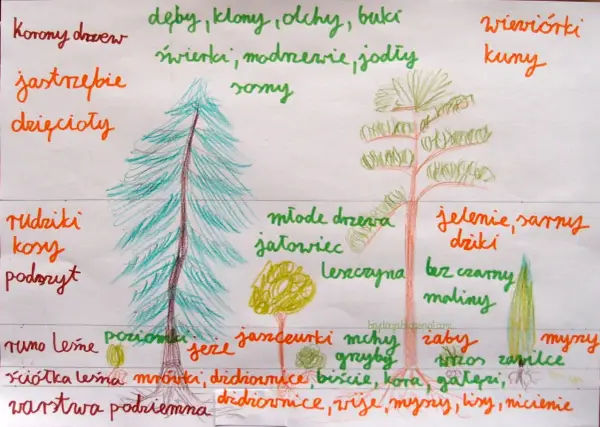 Korony drzew
dęby, klony, olchy, buki
świerki, modrzewie, jodły
sosny
wiewiórki
kuny
jastrzębie
dzięcioły
rudziki
kosy
młode drzewa
jałowiec
leszczyna
jelenie, sarny
dziki
bez czarny
maliny
podszyt
runo leśne
poziomki
jeże
jaszczurki
mchy
grzyby
żaby
wrzos zawilce
myszy
ściółka leśna mrówki, dżdżownice liście, kora, gałęzi,
warstwa podziemna dżdżownice, wije, myszy, lisy, nicienie